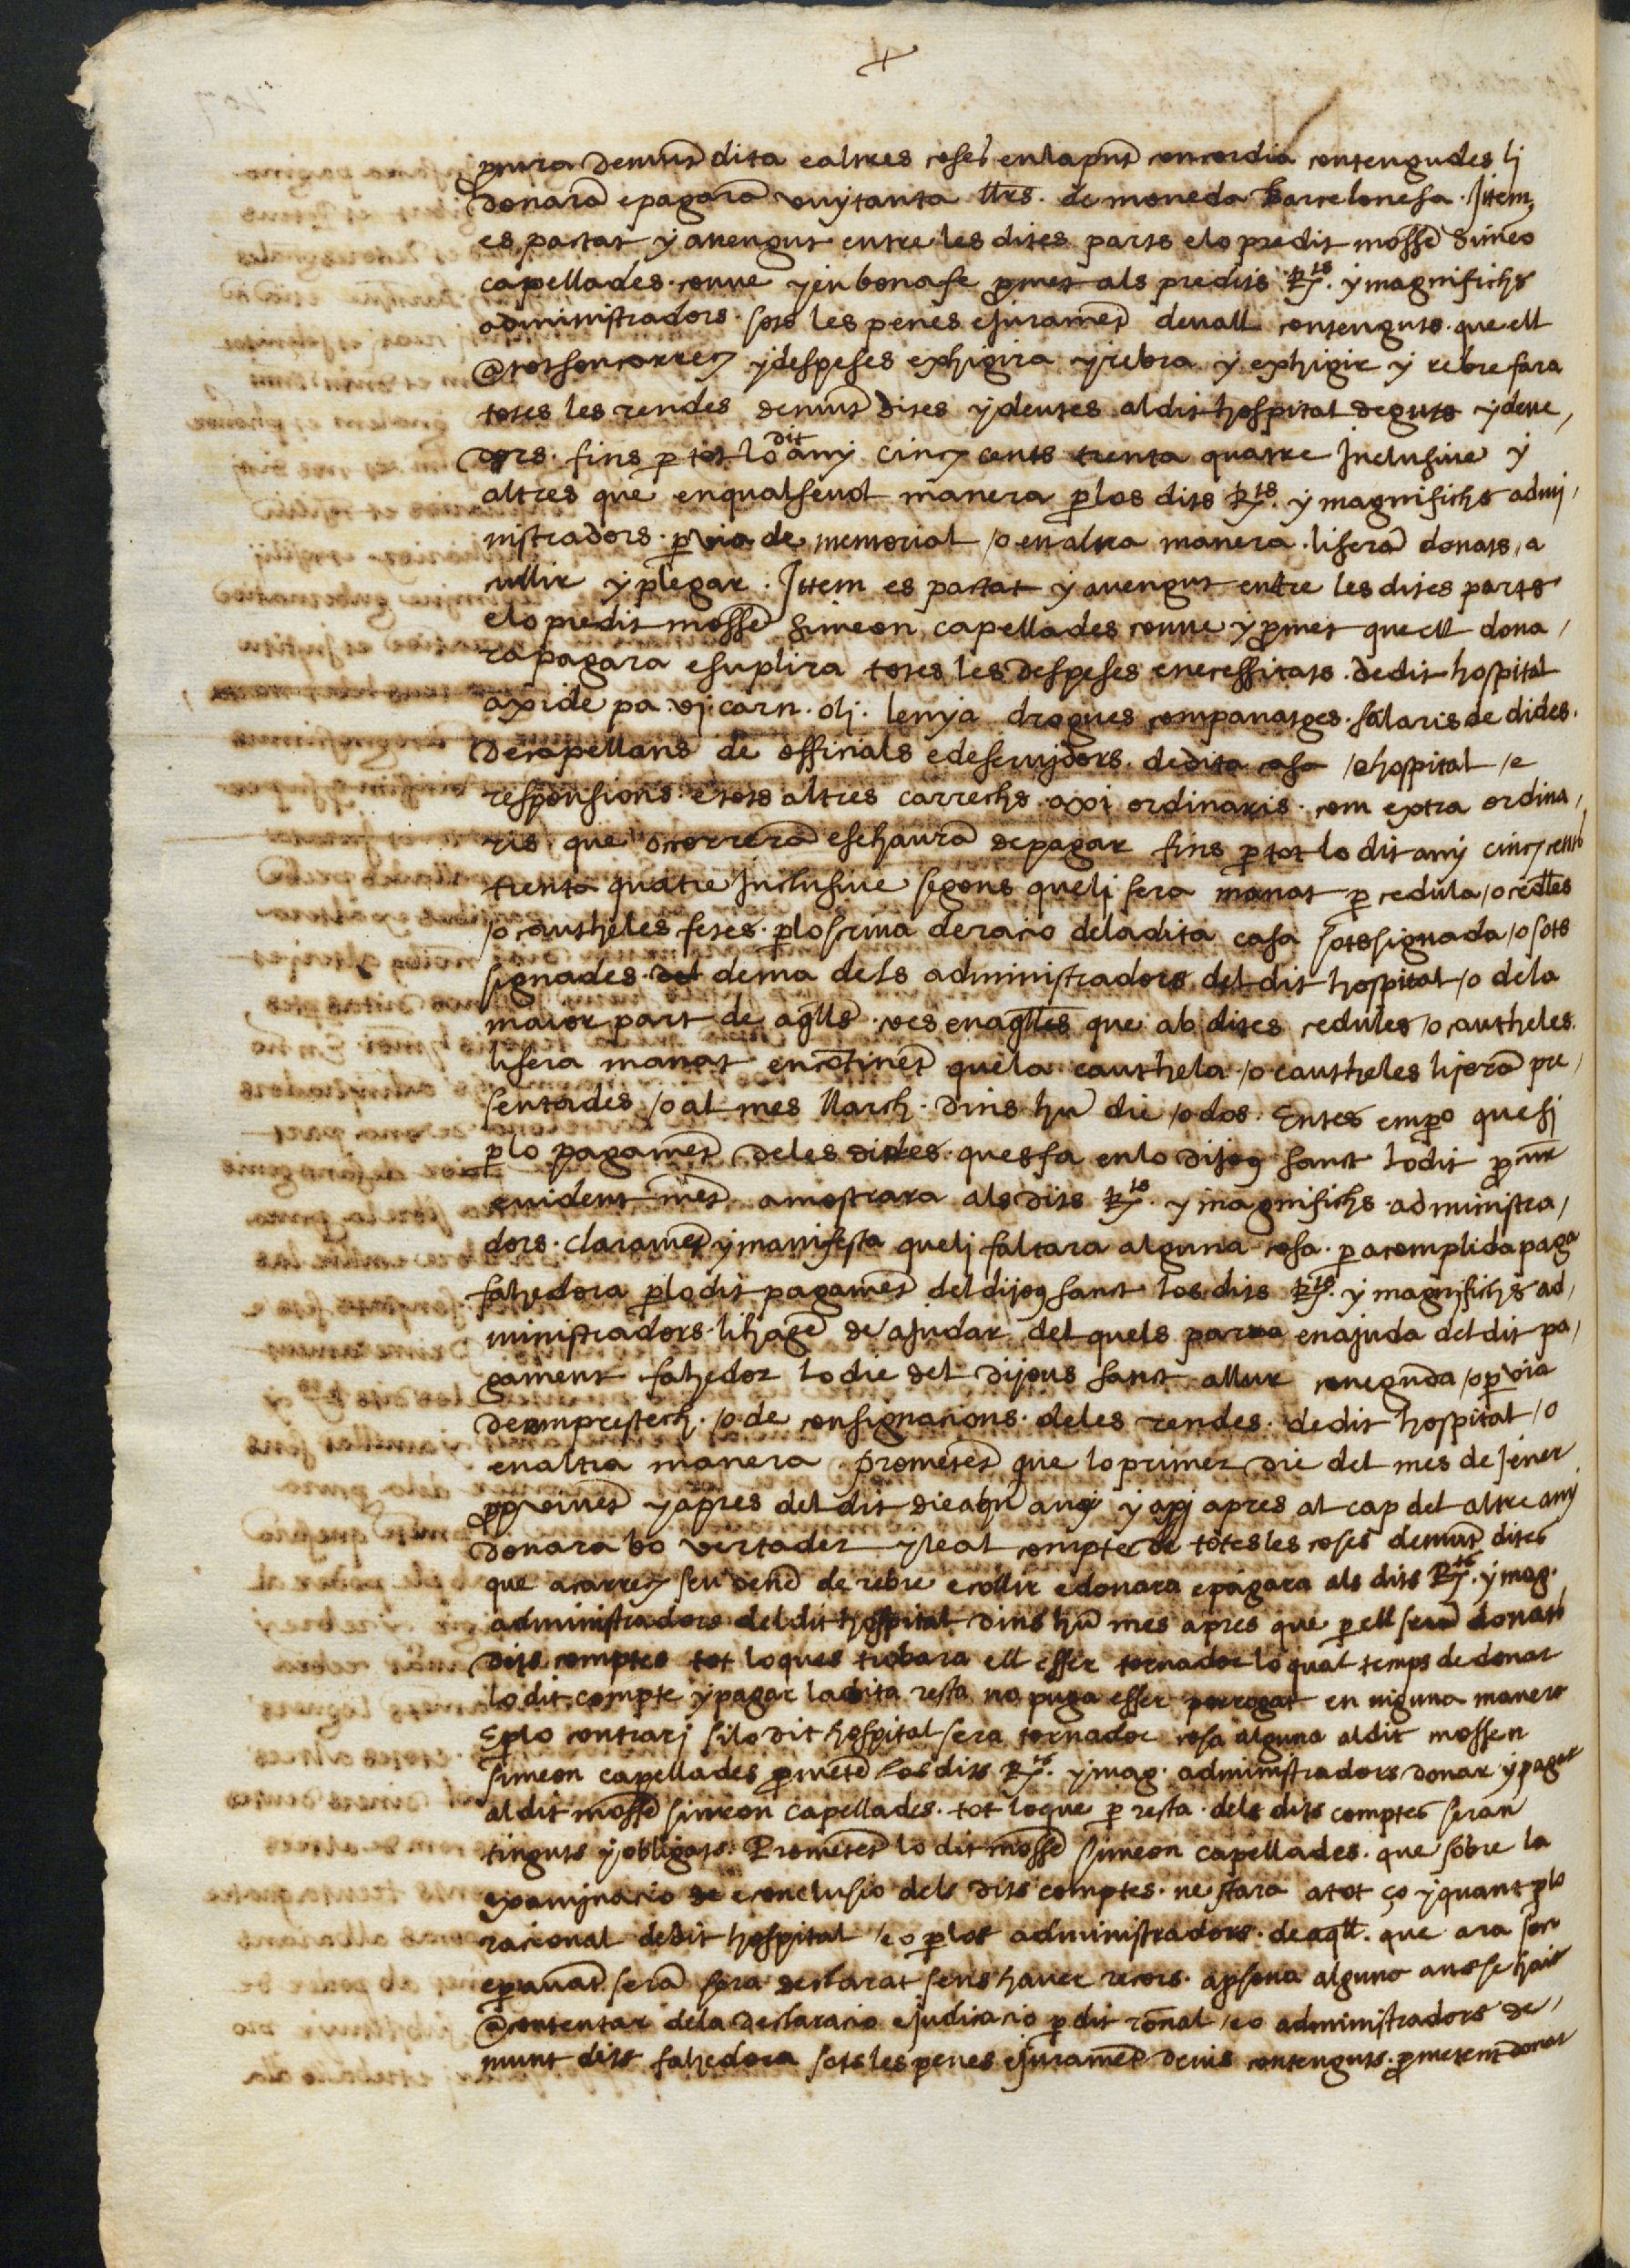 pnura demūt dita e altres coses en la pnt concordia contengudes lj
donarā e pagarā vuytanta llrs. de moneda barcelonesa. Ittem,
es pactat y avengut entre les dites parts e lo predit mossē Simeō
capellades. conve y en bona fe pmet als predits Rts. y magnifichs
administradors. sots les penes e juramēt devall contenguts. que ell
@ tot son carrech y despeses exhigira y rebra y exhigir y rebre fara
totes les rendes demūt dites y deutes al dit hospital deguts y deve,
dors. fins p tot lo dit any cinch cents trenta quatre Inclusive y
altres que en qualsevol manera p los dits Rts. y magnifichs admi,
nistradors. p via de memorial /o en altra manera. li serā donats, a
cullir y plegar. Ittem es pactat y avengut entre les dites parts
e lo predit mossē Simeon capellades conve y pmet que ell dona,
ra pagara e suplira totes les despeses e necessitats. de dit hospital
axi de pa. vj. carn. olj. lenya drogues companatges. salaris de dides.
de capellans de officials e de servidors. de dita casa /e hospital /e
responsions. e tots altres carrechs. axi ordinaris. com extra ordina,
ris que ocorrerā e se haurā de pagar fins p tot lo dit any cinch cents
trenta quatre Inclusive segons que lj sera manat p cedula /o cedlles
/o cautheles fetes. p lo scriva de racio de la dita casa sotssignada /o sots
signades. de ma dels administradors del dit hospital /o de la
maior part de aqlls. ves en aqlles que ab dites cedules /o cautheles.
li sera manat en cōtinēt que la cauthela /o cautheles li serā pre,
sentades /o al mes llarch. dins hū die /o dos. Entes empo que sj
p lo pagamēt de les dides. ques fa en lo dijo9 sanct lo dit pcur
evident mēt amostrara als dits Rts. y magnifichs administra,
dors. claramēt y manifesta que lj faltara alguna cosa. p acomplida paga
fahedora p lo dit pagamēt del dijo9 sanct los dits Rts. y magnifichs ad,
ministradors. li hagē de ajudar del quels parra en ajuda del dit pa,
gament fahedor lo die del dijous sanct a llur coneguda /o p via
de emprestech. /o de consignacions. de les rendes. de dit hospital /o
en altra manera prometēt que lo primer die del mes de Jener
pp vinēt y apres del dit die a hū any y axj apres al cap del altre any
donara bo vertader y leal compte de totes les coses demūt dites
que a carrech seu devē de rebre e collir e donara e pagara als dits Rts. y mag.
administradors del dit hospital dins hū mes apres que p ell serā donats
dits comptes tot lo ques trobara ell esser tornador lo qual temps de donar
lo dit compte y pagar la dita resta no puga esser porrogat en niguna manera
E p lo contrarj si lo dit hospital sera tornador cosa alguna al dit mossen
simeon capellades pmetē los dits Rts. y mag. administradors donar y pagar
al dit mossē simeon capellades. tot lo que p resta. dels dits comptes seran
tinguts y obligats. Prometēt lo dit mossē simeon capellades. que sobre la
examinacio e conclusio dels dits comptes. ne stara a tot ço y quant p lo
racional de dit hospital /e o p los administradors. de aqll. que ara son
e p avāt serā sera declarat sens haver recors. a psona alguna ans se haie
@ contentar de la declaracio e judicacio p dit roñal /e o administradors de,
munt dits fahedora sots les penes e juramēt devis contenguts. pmetent donar